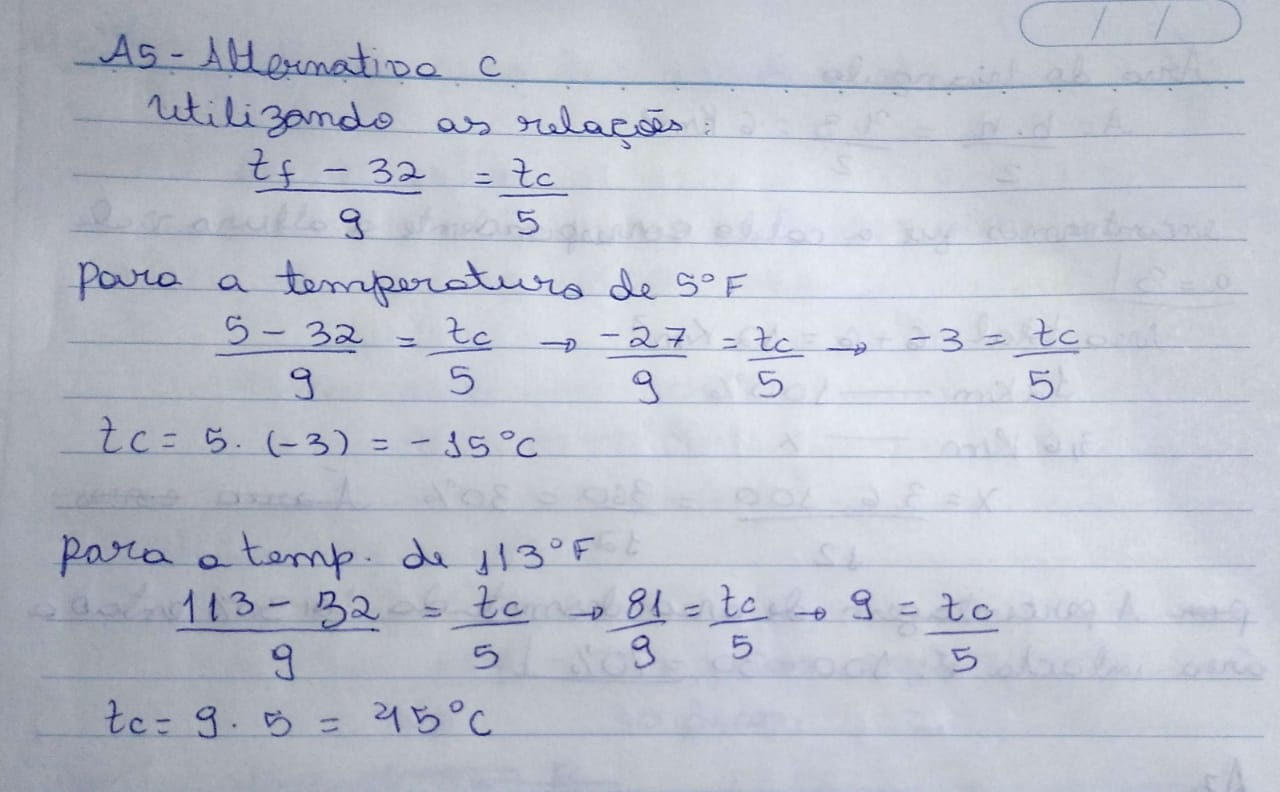 A5 - Alternativa c
Utilizando as relações:
tf - 32 / 9 = tc / 5
para a temperatura de 5°F
5 - 32 / 9 = tc / 5 → -27 / 9 = tc / 5 → -3 = tc / 5
tc = 5. (-3) = -15°C
para a temp. de 113°F
113 - 32 / 9 = tc / 5 → 81 / 9 = tc / 5 → 9 = tc / 5
tc = 9 . 5 = 45°C